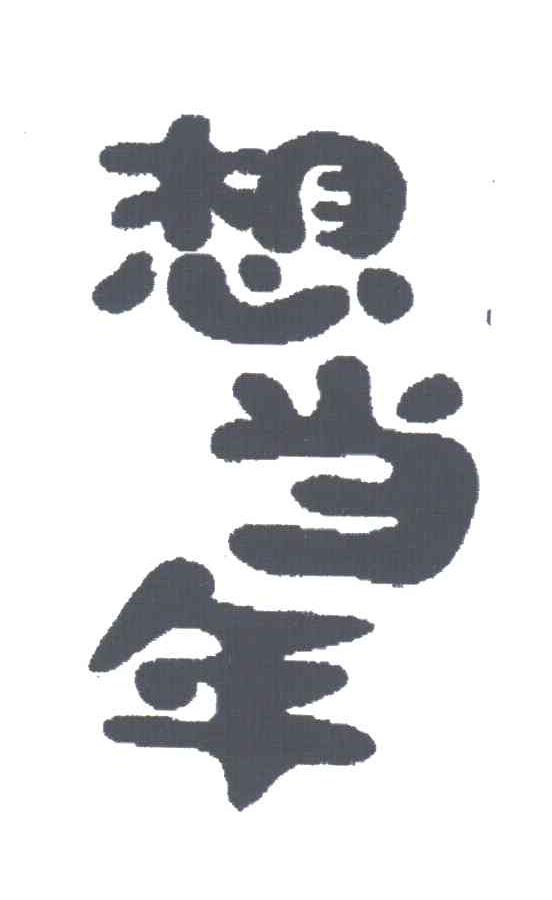 想当年